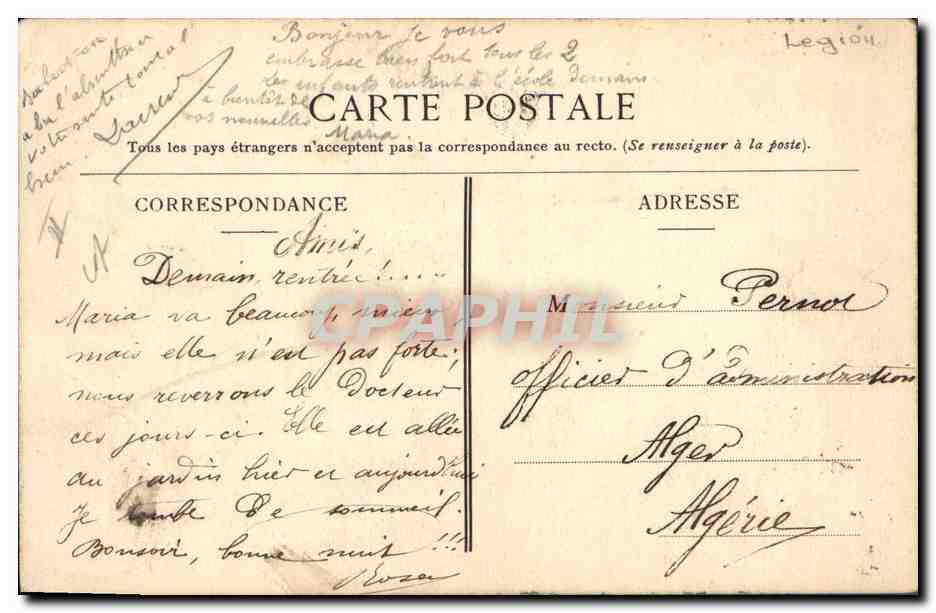 Bonjour je vous
embrasse bien fort tous les 2
Les enfants rentrent à l'école demain
à bientôt de
vos nouvelles
Maria.
votre santé
bien.
Legion
CARTE POSTALE
Tous les pays étrangers n'acceptent pas la correspondance au recto. (Se renseigner à la poste).
CORRESPONDANCE
Amis,
Demain, rentrée!....
Maria va beaucoup mieux
mais elle n'est pas forte;
nous reverrons le Docteur
ces jours-ci. Elle est allée
au jardin hier et aujourd'hui
Je tombe de sommeil.
Bonsoir, bonne nuit!!!
Rosa
ADRESSE
Monsieur Pernot
Officier d'administration
Alger
Algérie
CPAPHIL